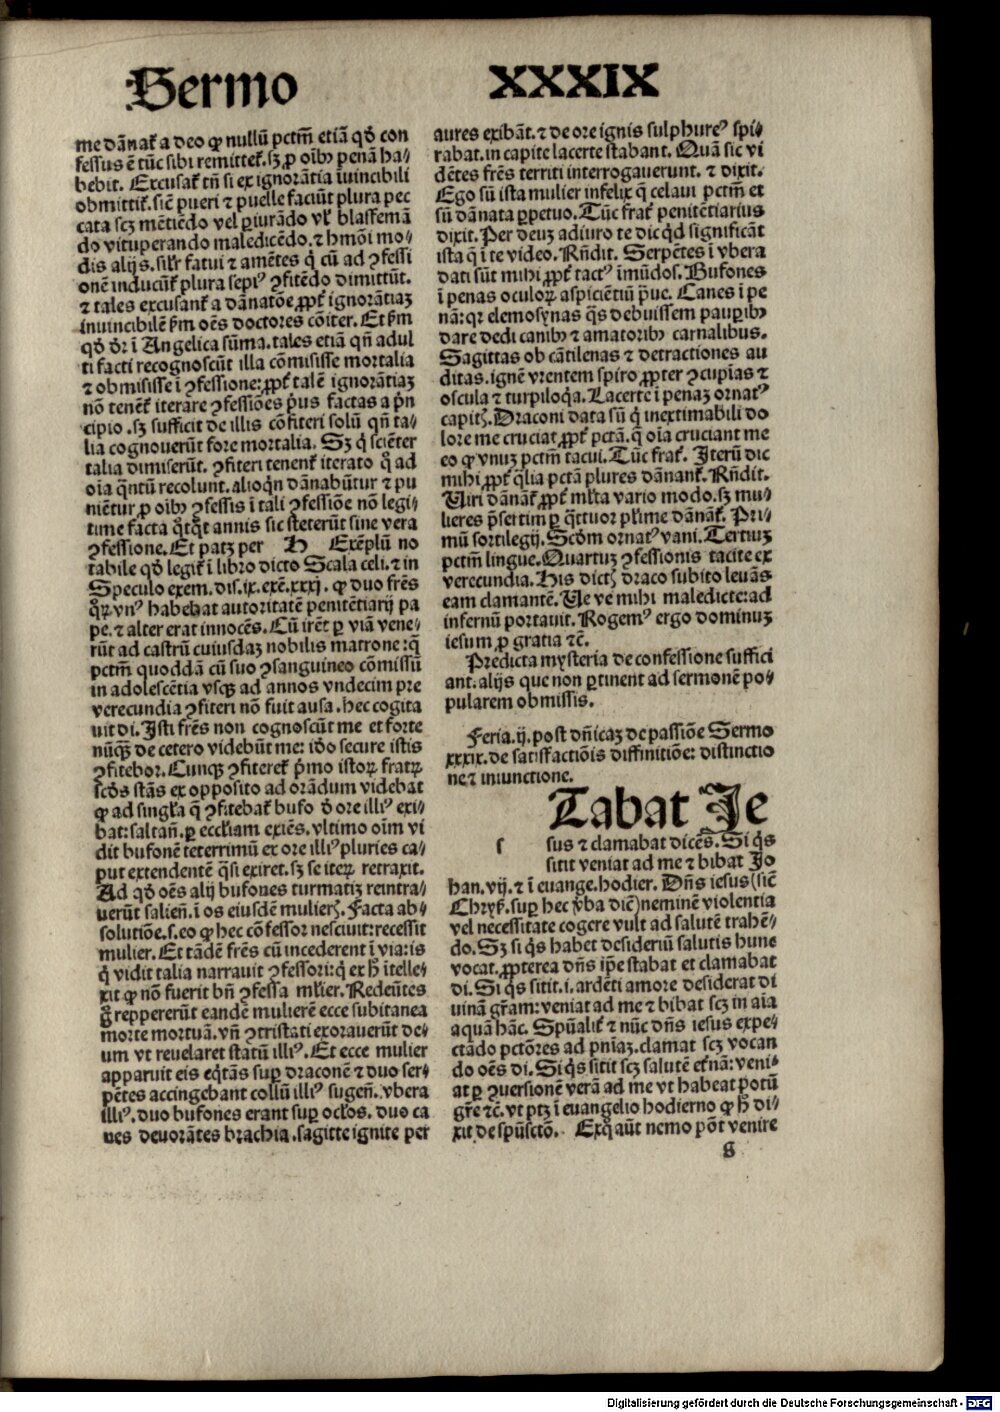 Sermo XXXIX
me dãnat᷑ a deo qꝛ nullũ pctm̃ etiã qď con
fessus ẽ tũc sibi remittet᷑. sꝫ ꝓ oĩbꝰ penã ha⸗
bebit. Excusat᷑ tñ si ex ignorãtia iuincibili
obmittit᷑. sicẽ pueri ⁊ puelle faciũt plura pec
cata scꝫ mẽtiẽdo vel ꝑiurãdo vl̓ blasfemã
do vituperando maledicẽdo. ⁊ hm̃õi mo⸗
dis alijs. sil̓r fatui ⁊ amẽtes q̇ cũ ad ꝯfessi
onẽ inducũt᷑ plura sepiꝰ ꝯfitẽdo dimittũt.
⁊ tales excusant᷑ a dãnatõe ꝓpt᷑ ignorãtiaꝫ
inuincibilẽ ẜm oẽs doctores cõiter. Et ẜm
qď dr̃ ĩ Angelica sũma. tales etiã qñ adul
ti facti recognoscũt illa cõmisisse mortalia
⁊ obmisisse ĩ ꝯfessione: ꝓpt᷑ talẽ ignorãtiaꝫ
nõ tenẽt᷑ iterare ꝯfessiões p̃us factas a p̃n
cipio. sꝫ sufficit de illis cõfiteri solũ qñ ta⸗
lia cognouerũt fore mortalia. Sꝫ q̇ sciẽter
talia dimiserũt. ꝯfiteri tenent᷑ iterato q̊ ad
oĩa q̃ntũ recolunt. alioq̇n dãnabũtur ⁊ pu
niẽtur ꝓ oĩbꝰ ꝯfessis ĩ tali ꝯfessiõe nõ legi⸗
time facta q̊tq̊t annis sic steterũt sine vera
ꝯfessione. Et patꝫ per H Exẽplũ no
tabile qď legit᷑ ĩ libro dicto Scala celi. ⁊ in
Speculo exem. dis. ix. exẽ. xxxij. qꝛ duo frẽs
q̊ꝝ vnꝰ habebat autoritatẽ penitẽtiarij pa
pe. ⁊ alter erat innocẽs. Cũ irẽt ꝑ viã vene⸗
rũt ad castrũ cuiusdaꝫ nobilis matrone: q̃
pctm̃ quoddã cũ suo ꝯsanguineo cõmissũ
in adolescẽtia vsqꝫ ad annos vndecim pre
verecundia ꝯfiteri nõ fuit ausa. hec cogita
uit di. Isti frẽs non cognoscũt me et forte
nũqꝫ de cetero videbũt me: iďo secure istis
ꝯfitebor. Cunqꝫ ꝯfiteret᷑ p̃mo istoꝝ fratꝝ
scďs stãs ex opposito ad orãdum videbat
qꝛ ad singl̓a q̃ ꝯfitebat᷑ bufo ď ore illiꝰ exi⸗
bat: saltañ. ꝑ eccl̓iam exiẽs. vltimo oĩm vi
dit bufonẽ teterrimũ ex ore illiꝰ pluries ca⸗
put extendentẽ q̃si exiret. sꝫ se iteꝝ retraxit.
Ad qď oẽs alij bufones turmatiꝫ reintra⸗
uerũt salieñ. ĩ os eiusdẽ mulierꝭ. Facta ab⸗
solutiõe. s. eo qꝛ hec cõfessor nesciuit: recessit
mulier. Et tãdẽ frẽs cũ incederent ĩ via: is
q̇ vidit talia narrauit ꝯfessori: q̇ ex ħ ĩtelle⸗
xit qꝛ nõ fuerit bñ ꝯfessa ml̓ier. Redeũtes
g̊ reppererũt eandẽ mulierẽ ecce subitanea
morte mortuã. vñ ꝯtristati exorauerũt de⸗
um vt reuelaret statũ illiꝰ. Et ecce mulier
apparuit eis eq̇tãs suꝑ draconẽ ⁊ duo ser⸗
pẽtes accingebant collũ illiꝰ sugeñ. vbera
illiꝰ. duo bufones erant suꝑ ocl̓os. duo ca
nes deuorãtes brachia. sagitte ignite per
aures exibãt. ⁊ de ore ignis sulphureꝰ spi⸗
rabat. in capite lacerte stabant. Quã sic vi
dẽtes frẽs territi interrogauerunt. ⁊ dixit.
Ego sũ ista mulier infelix q̃ celaui pctm̃ et
sũ dãnata ꝑpetuo. Tũc frat᷑ penitẽtiarius
dixit. Per deuꝫ adiuro te dic q̇d significãt
ista q̃ ĩ te video. Rñdit. Serpẽtes ĩ vbera
dati sũt mihi ꝓpt᷑ tactꝰ imũdos. Bufones
ĩ penas oculoꝝ aspiciẽtiũ p̃uc. Canes ĩ pe
nã: qꝛ elemosynas q̃s debuissem pauꝑibꝰ
dare dedi canibꝰ ⁊ amatoribꝰ carnalibus.
Sagittas ob cãtilenas ⁊ detractiones au
ditas. ignẽ vrentem spiro ꝓpter ꝯcupĩas ⁊
oscula ⁊ turpiloq̃a. Lacerte ĩ penaꝫ ornatꝰ
capitꝭ. Draconi data sũ q̇ inextimabili do
lore me cruciat ꝓpt᷑ pctã. q̃ oĩa cruciant me
eo qꝛ vnuꝫ pctm̃ tacui. Tũc frat᷑. Iterũ dic
mihi ꝓpt᷑ q̃lia pctã plures dãnant᷑. Rñdit.
Viri dãnãt᷑ ꝓpt᷑ ml̓ta vario modo. sꝫ mu⸗
lieres p̃sertim ꝑ q̃ttuor pl̓ime dãnãt᷑. Pri⸗
mũ sortilegij. Scďm ornatꝰ vani. Tertiuꝫ
pctm̃ lingue. Quartuꝫ ꝯfessionis tacite ex
verecundia. His dictꝭ draco subito leuãs
eam clamantẽ. Ve ve mihi maledicte: ad
infernũ portauit. Rogemꝰ ergo dominuꝫ
iesum ꝓ gratia ⁊c̃.
Predicta mysteria de confessione suffici
ant. alijs que non ꝑtinent ad sermonẽ po⸗
pularem obmissis.
Feria. ij. post dñicaꝫ de passiõe Sermo
xxxix. de satisfactiõis diffinitiõe: distinctio
ne ⁊ iniunctione.
Tabat Je
s sus ⁊ clamabat dicẽs. Si q̇s
sitit veniat ad me ⁊ bibat Jo
han. vij. ⁊ ĩ euange. hodier. Dñs iesus (sicẽ
Chrys̓. suꝑ hec ṽba dic̃) neminẽ violentia
vel necessitate cogere vult ad salutẽ trahẽ⸗
do. Sꝫ si q̇s habet desideriũ salutis hunc
vocat. ꝓpterea dñs ip̃e stabat et clamabat
di. Si q̇s sitit. i. ardẽti amore desiderat di
uinã gr̃am: veniat ad me ⁊ bibat scꝫ in aĩa
aquã hãc. Sp̃ualit᷑ ⁊ nũc dñs iesus expe⸗
ctãdo pctõres ad pnĩaꝫ. clamat scꝫ vocan
do oẽs di. Si q̇s sitit scꝫ salutẽ et̃nã: veni⸗
at ꝑ ꝯuersionẽ verã ad me vt habeat potũ
gr̃e ⁊c̃. vt ptꝫ ĩ euangelio hodierno qꝛ ħ di⸗
xit de sp̃usctõ. Ex q̊ aũt nemo põt venire
s
Digitalisierung gefördert durch die Deutsche Forschungsgemeinschaft - DFG